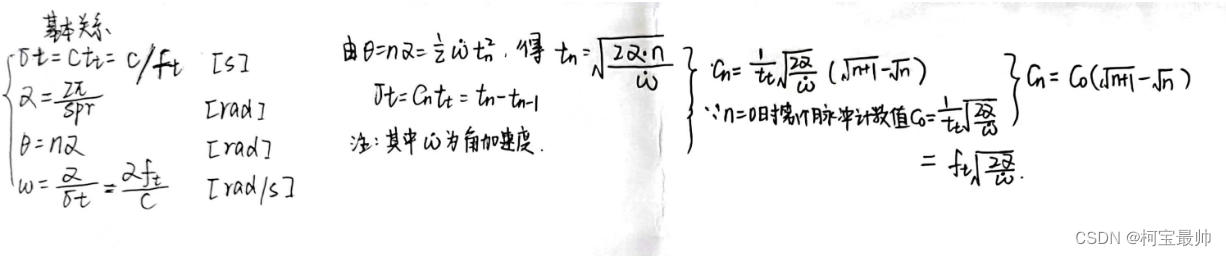 基本关系
δt = Ct_t = C/f_t [s]
α = 2π/spr [rad]
θ = nα [rad]
ω = α/δt = αf_t/C [rad/s]
由θ=nα=½ω̇t_n², 得 t_n=√(2α·n/ω̇)
δt=C_n t_t = t_n-t_{n-1}
注:其中ω̇为角加速度.
∴C_n = 1/t_t √(2α/ω̇) (√(n+1)-√n)
∵n=0时第1个脉冲计数值C_0= 1/t_t √(2α/ω̇)
= f_t√(2α/ω̇).
C_n = C_0(√(n+1)-√n)
CSDN @柯宝最帅